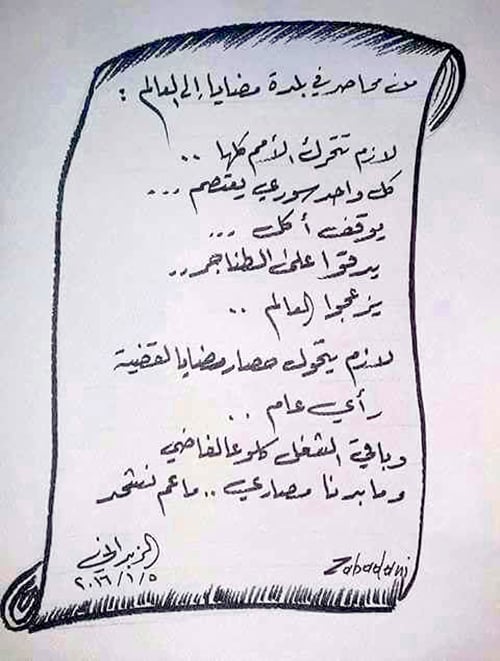 من محاصر في بلدة مضايا إلى العالم :
لازم تتحرك الأمم كلها ..
كل واحد سوري يعتصم ...
يوقف أكل ...
يدقوا على الطناجر ..
يزعجوا العالم ..
لازم يتحول حصار مضايا لقضية
رأي عام ..
وباقي الشغل كلو عالفاضي
وما بدنا مصاري .. ما عم نشحد
Zabadani
٢٠١٦/١/٥